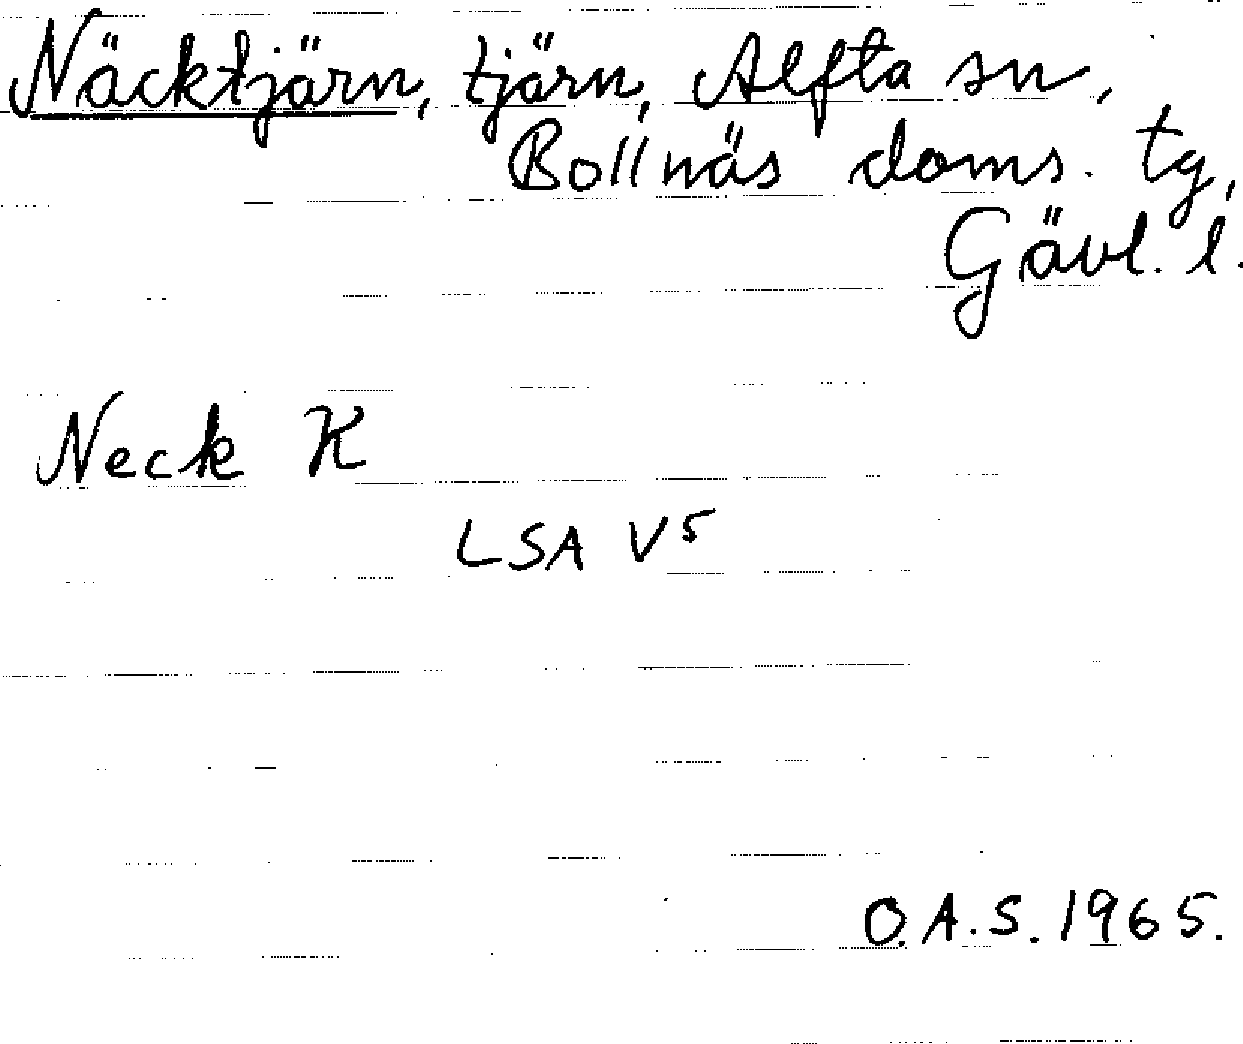 Näcktjärn, tjärn, Alfta sn,
Bollnäs doms. tg,
Gävl. l.
Neck K
LSA V5
O.A.S. 1965.